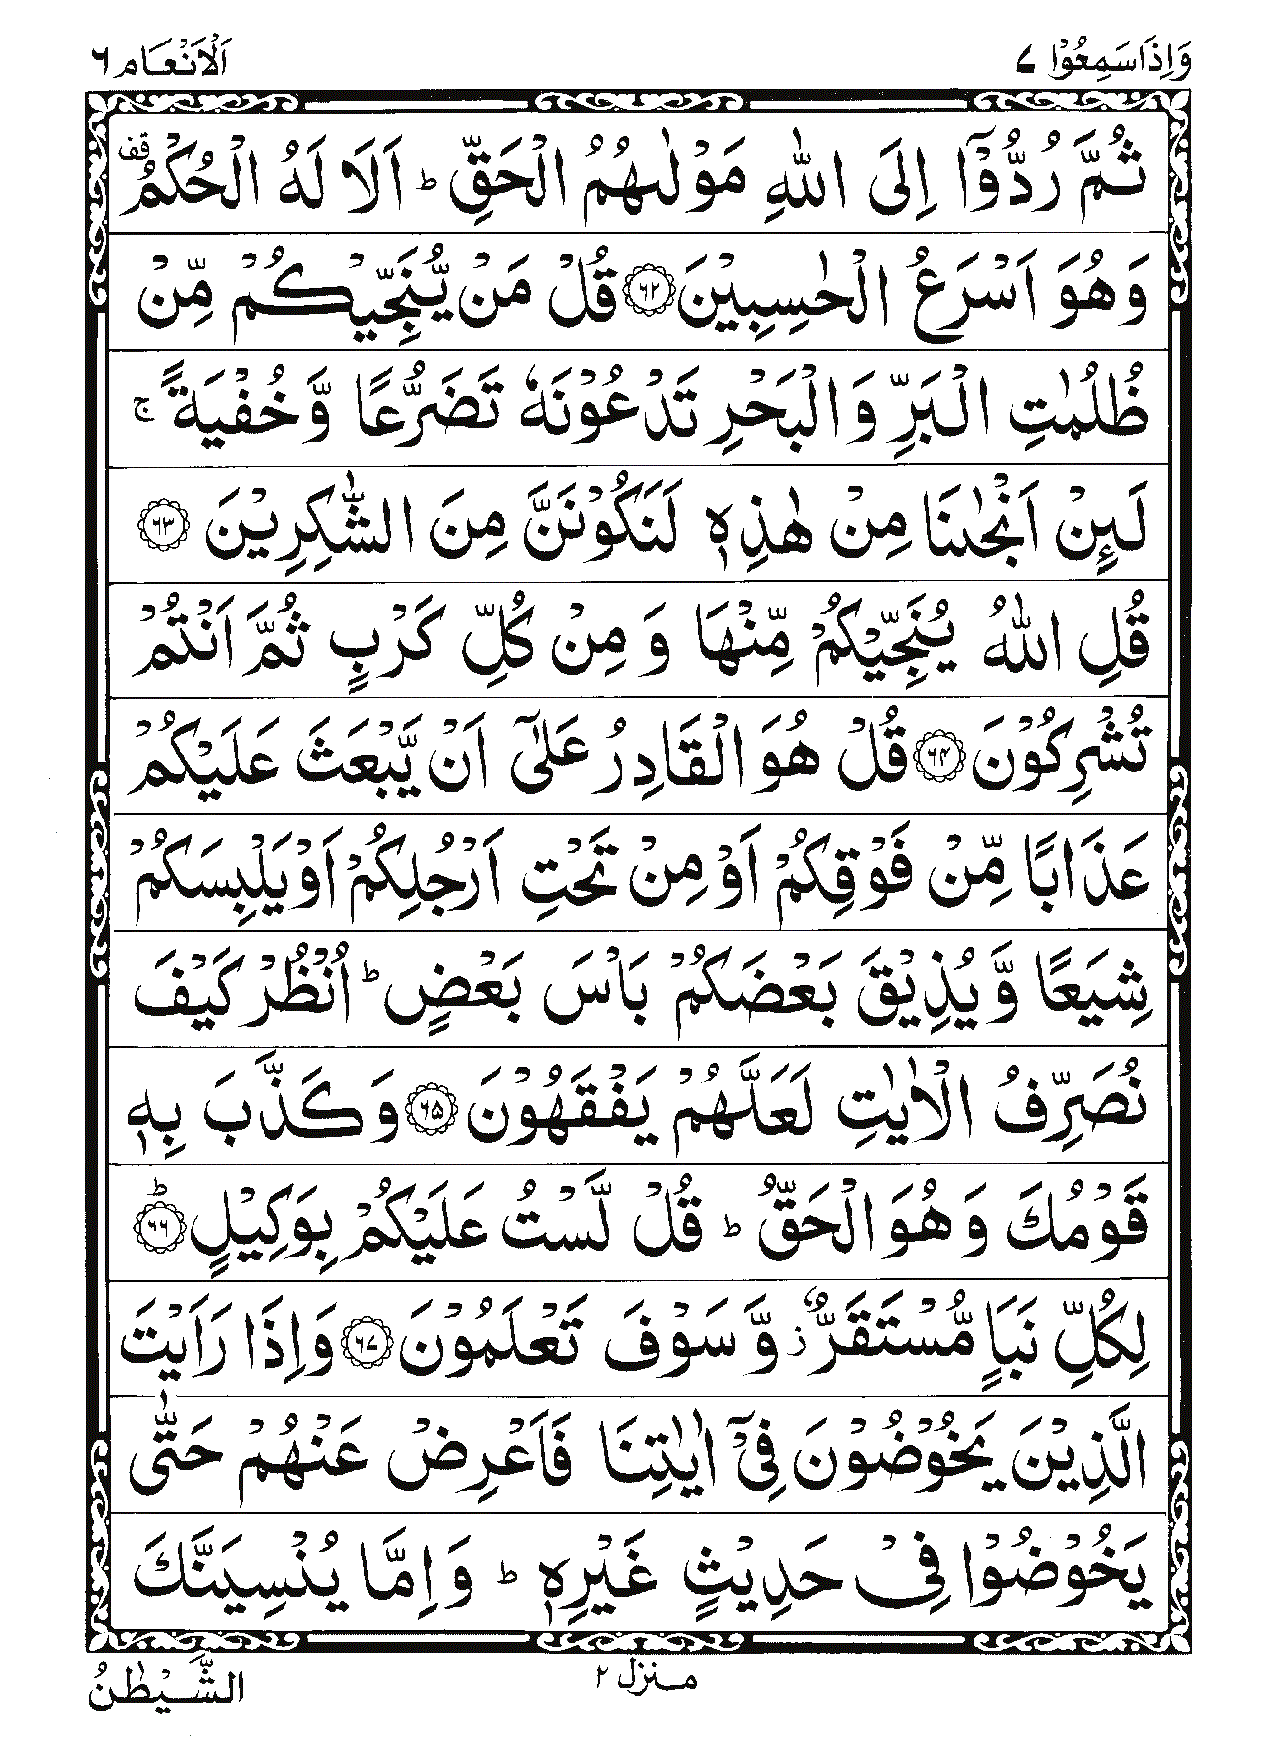 وَاِذَاسَمِعُوْا ٧
اَلْاَنْعَام ٦
ثُمَّ رُدُّوْۤا اِلَى اللّٰهِ مَوْلٰىهُمُ الْحَقِّ ؕ اَلَا لَهُ الْحُكْمُ قف
وَهُوَ اَسْرَعُ الْحٰسِبِيْنَ ٦٢ قُلْ مَنْ يُّنَجِّيْكُمْ مِّنْ
ظُلُمٰتِ الْبَرِّ وَالْبَحْرِ تَدْعُوْنَهٗ تَضَرُّعًا وَّخُفْيَةً ۚ
لَىِٕنْ اَنْجٰىنَا مِنْ هٰذِهٖ لَنَكُوْنَنَّ مِنَ الشّٰكِرِيْنَ ٦٣
قُلِ اللّٰهُ يُنَجِّيْكُمْ مِّنْهَا وَمِنْ كُلِّ كَرْبٍ ثُمَّ اَنْتُمْ
تُشْرِكُوْنَ ٦٤ قُلْ هُوَ الْقَادِرُ عَلٰۤى اَنْ يَّبْعَثَ عَلَيْكُمْ
عَذَابًا مِّنْ فَوْقِكُمْ اَوْ مِنْ تَحْتِ اَرْجُلِكُمْ اَوْ يَلْبِسَكُمْ
شِيَعًا وَّيُذِيْقَ بَعْضَكُمْ بَاْسَ بَعْضٍ ؕ اُنْظُرْ كَيْفَ
نُصَرِّفُ الْاٰيٰتِ لَعَلَّهُمْ يَفْقَهُوْنَ ٦٥ وَكَذَّبَ بِهٖ
قَوْمُكَ وَهُوَ الْحَقُّ ؕ قُلْ لَّسْتُ عَلَيْكُمْ بِوَكِيْلٍ ؕ ٦٦
لِكُلِّ نَبَاٍ مُّسْتَقَرٌّ ز وَّسَوْفَ تَعْلَمُوْنَ ٦٧ وَاِذَا رَاَيْتَ
الَّذِيْنَ يَخُوْضُوْنَ فِيْۤ اٰيٰتِنَا فَاَعْرِضْ عَنْهُمْ حَتّٰى
يَخُوْضُوْا فِيْ حَدِيْثٍ غَيْرِهٖ ؕ وَاِمَّا يُنْسِيَنَّكَ
منزل ٢
الشَّيْطٰنُ